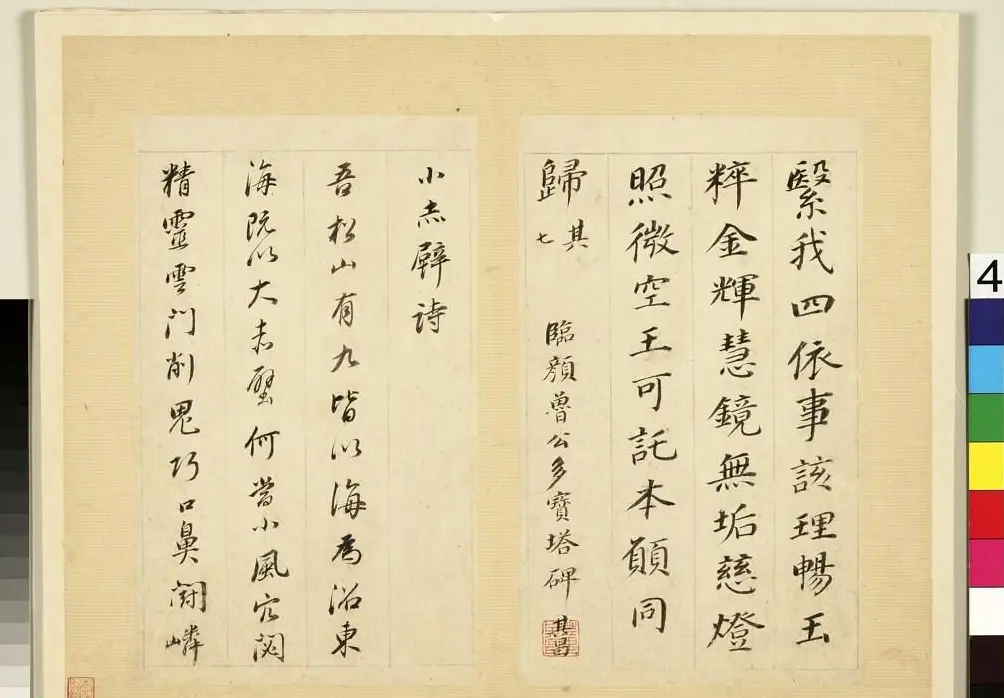 繄我四依事該理暢玉
粹金輝慧鏡無垢慈燈
照微空王可託本願同
歸 其七
臨顏魯公多寶塔碑 其昌
小赤壁詩
吾松山有九皆以海為沼東
海既以大赤壁何當小風穴閟
精靈雲門削鬼巧口鼻鬭嶙
4